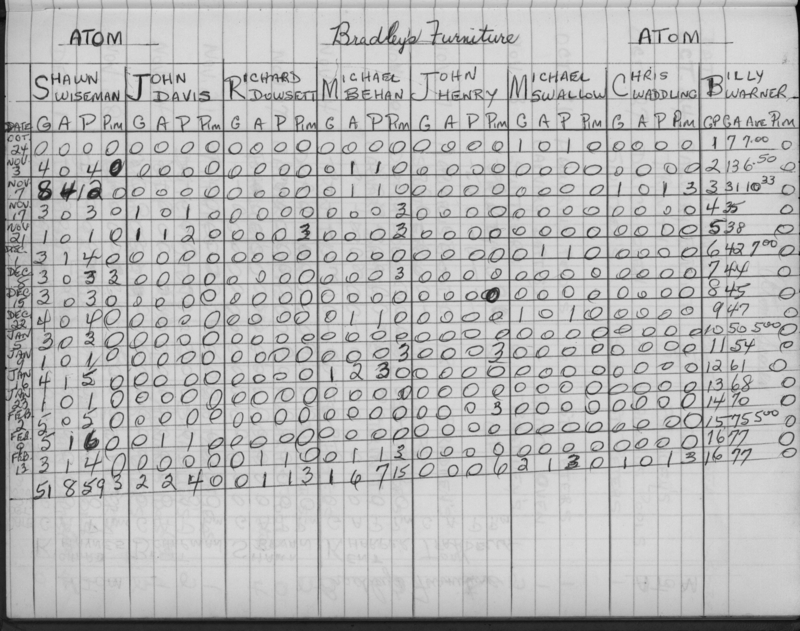 ATOM Bradley's Furniture ATOM
SHAWN WISEMAN JOHN DAVIS RICHARD DOWSETT MICHAEL BEHAN JOHN HENRY MICHAEL SWALLOW CHRIS WADDLING BILLY WARNER
DATE G A P Pim G A P Pim G A P Pim G A P Pim G A P Pim G A P Pim G A P Pim GP GA Ave Pim
OCT. 24 0 0 0 0 0 0 0 0 0 0 0 0 0 0 0 0 0 0 0 0 1 0 1 0 0 0 0 0 1 7 7.00 0
NOV 3 4 0 4 0 0 0 0 0 0 0 0 0 0 1 1 0 0 0 0 0 0 0 0 0 0 0 0 0 2 13 6.50 0
NOV 7 8 4 12 0 0 0 0 0 0 0 0 0 0 1 1 0 0 0 0 0 0 0 0 0 1 0 1 3 3 31 10 33 0
NOV 17 3 0 3 0 1 0 1 0 0 0 0 0 0 0 0 3 0 0 0 0 0 0 0 0 0 0 0 0 4 35 0
NOV 21 1 0 1 0 1 1 2 0 0 0 0 3 0 0 0 3 0 0 0 0 0 0 0 0 0 0 0 0 5 38 0
DEC. 3 1 4 0 0 0 0 0 0 0 0 0 0 0 0 0 0 0 0 0 0 1 1 0 0 0 0 0 6 42 7.00 0
DEC 8 3 0 3 3 0 0 0 0 0 0 0 0 0 0 0 3 0 0 0 0 0 0 0 0 0 0 0 0 7 44 0
DEC 15 3 0 3 0 0 0 0 0 0 0 0 0 0 0 0 0 0 0 0 0 0 0 0 0 0 0 0 0 8 45 0
DEC 22 4 0 4 0 0 0 0 0 0 0 0 0 0 1 1 0 0 0 0 0 1 0 1 0 0 0 0 0 9 47 0
JAN 5 3 0 3 0 0 0 0 0 0 0 0 0 0 0 0 0 0 0 0 0 0 0 0 0 0 0 0 0 10 50 5.00 0
JAN 9 1 0 1 0 0 0 0 0 0 0 0 0 0 0 0 3 0 0 0 3 0 0 0 0 0 0 0 0 11 54 0
JAN 16 4 1 5 0 0 0 0 0 0 0 0 0 1 2 3 0 0 0 0 0 0 0 0 0 0 0 0 0 12 61 0
JAN 23 1 0 1 0 0 0 0 0 0 0 0 0 0 0 0 0 0 0 0 0 0 0 0 0 0 0 0 0 13 68 0
FEB. 2 5 0 5 0 0 0 0 0 0 0 0 0 0 0 0 0 0 0 0 3 0 0 0 0 0 0 0 0 14 70 0
FEB. 6 5 1 6 0 0 1 1 0 0 0 0 0 0 0 0 0 0 0 0 0 0 0 0 0 0 0 0 0 15 75 5.00 0
FEB. 13 3 1 4 0 0 0 0 0 0 1 1 0 0 1 1 3 0 0 0 0 0 0 0 0 0 0 0 0 16 77 0
51 8 59 3 2 2 4 0 0 1 1 3 1 6 7 15 0 0 0 6 2 1 3 0 1 0 1 3 16 77 0